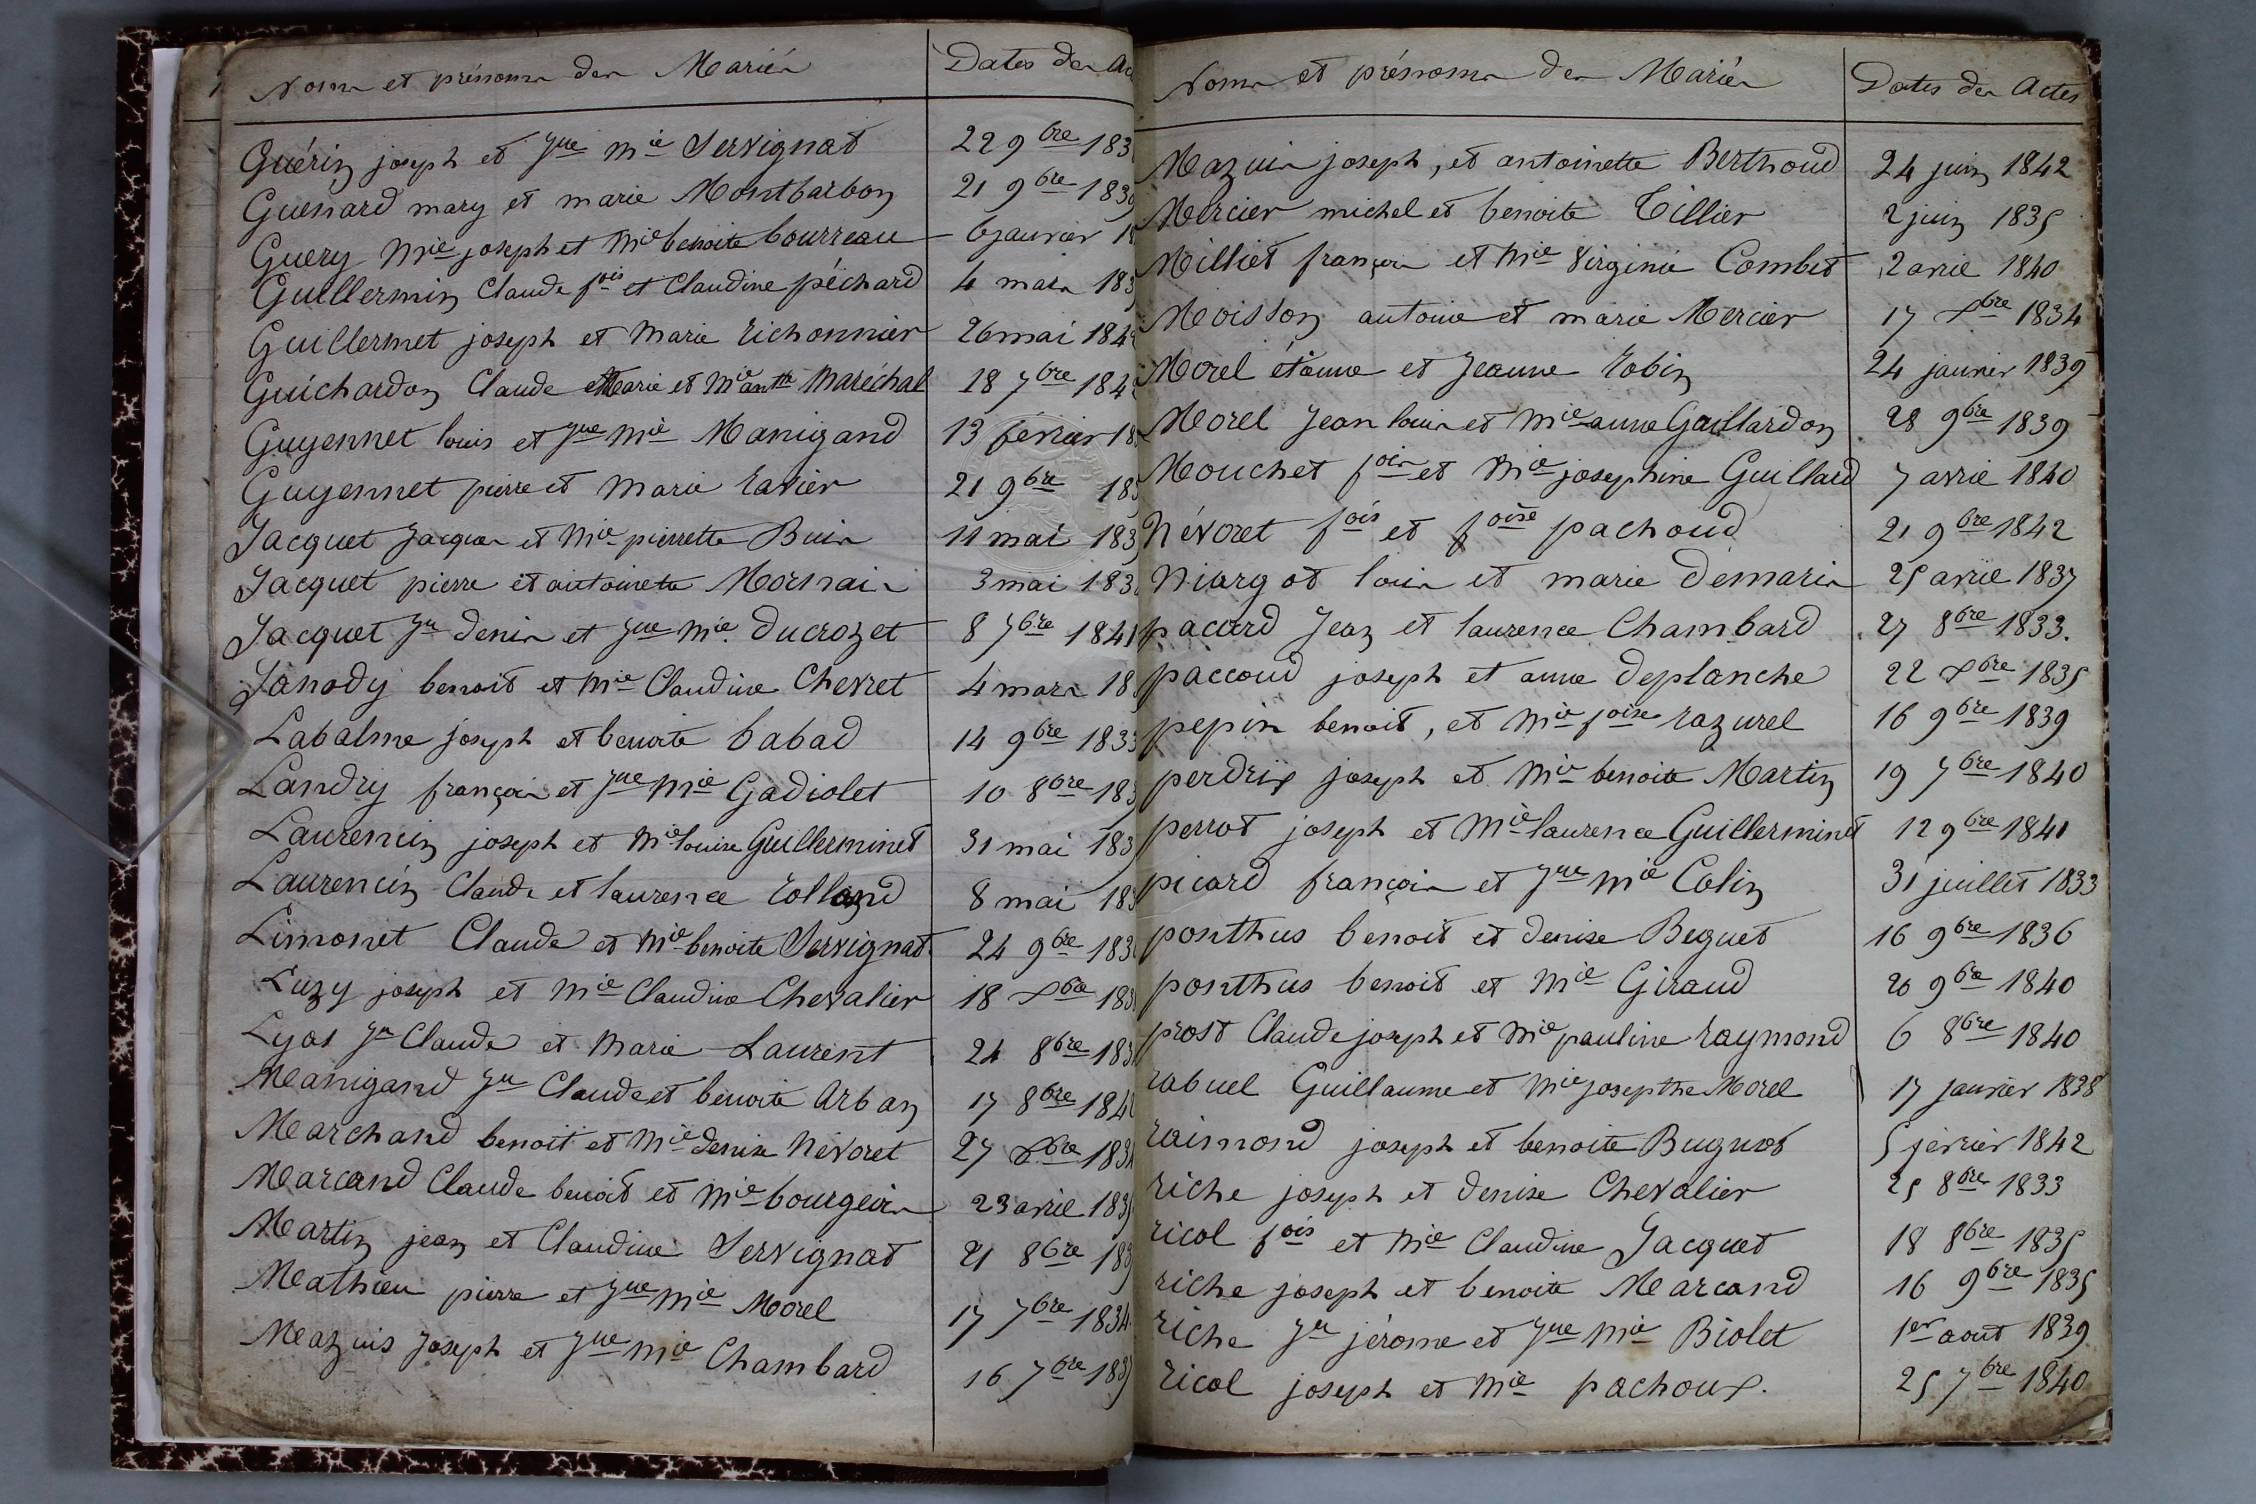 Noms et prénoms des Mariés Dates des Ac
Guérin joseph et Jne Mie Servignat 22 9bre 183
Guenard mary et marie Montbarbon 21 9bre 1839
Guery Mie joseph et Mie benoite bourreau 6 janvier 18
Guillermin Claude fois et Claudine péchard 4 mars 183
Guillermet joseph et Marie richonnier 26 mai 184
Guichardon Claude Marie et Mie antte Maréchal 28 7bre 184
Guyennet louis et Jne Mie Manigand 13 février 18
Guyennet pierre et Marie ravier 21 9bre 183
Jacquet Jacques et Mie pierrette Buis 11 mai 183
Jacquet pierre et antoinette Mornais 3 mai 183
Jacquet Jn denis et Jne Mie Ducrozet 8 7bre 1841
Janody benoit et Mie Claudine Chevret 4 mars 18
Labalme joseph et benoite babad 14 9bre 1833
Landry françois et Jne Mie Gadiolet 10 8bre 183
Laurencin joseph et Mie louise Guillerminet 31 mai 183
Laurencin Claude et laurence rolland 8 mai 183
Limonet Claude et Mie benoite Servignat 24 9bre 183
Luzy joseph et Mie Claudine Chevalier 18 Xbre 183
Lyas Jn Claude et Marie Laurent 24 8bre 183
Manigand Jn Claude et benoite Arban 17 8bre 184
Marchand benoit et Mie denise Névoret 27 Xbre 183
Marcand Claude benoit et Mie bourgeois 23 avril 183
Martin jean et Claudine Servignat 21 8bre 183
Mathieu pierre et Jne Mie Morel 17 7bre 1834
Mazuis Joseph et Jne Mie Chambard 16 7bre 183
Noms et prénoms des Mariés Dates des Actes
Mazuis joseph, et antoinette Berthoud 24 juin 1842
Mercier michel et benoite Tillier 2 juin 1835
Milliet françois et Mie Virginie Combet 2 avril 1840
Moisson antoine et marie Mercier 17 Xbre 1834
Morel étienne et Jeanne robin 24 janvier 1839
Morel Jean louis et Mie anne Gaillardon 28 9bre 1839
Mouchet fois et Mie josephine Guillard 7 avril 1840
Névoret fois et foise pachoud 21 9bre 1842
Niargot louis et marie demaris 25 avril 1837
pacard Jean et laurence Chambard 27 8bre 1833.
paccoud joseph et anne deplanche 22 Xbre 1835
pepin benoit, et Mie foise razurel 16 9bre 1839
perdrix joseph et Mie benoite Martin 19 7bre 1840
perrot joseph et Mie laurence Guillerminet 12 9bre 1841
picard françois et Jne Mie Colin 31 juillet 1833
ponthus benoit et denise Beguet 16 9bre 1836
ponthus benoit et Mie Giraud 20 9bre 1840
prost Claude joseph et Mie pauline raymond 6 8bre 1840
rabuel Guillaume et Mie josepthe Morel 17 janvier 1838
raimond joseph et benoite Bugnot 5 février 1842
riche joseph et denise Chevalier 25 8bre 1833
ricol fois et Mie Claudine Jacquet 18 8bre 1835
riche joseph et benoite Marcand 16 9bre 1835
riche Jn jérome et Jne Mie Biolet 1er aout 1839
ricol joseph et Mie pachoux. 25 7bre 1840